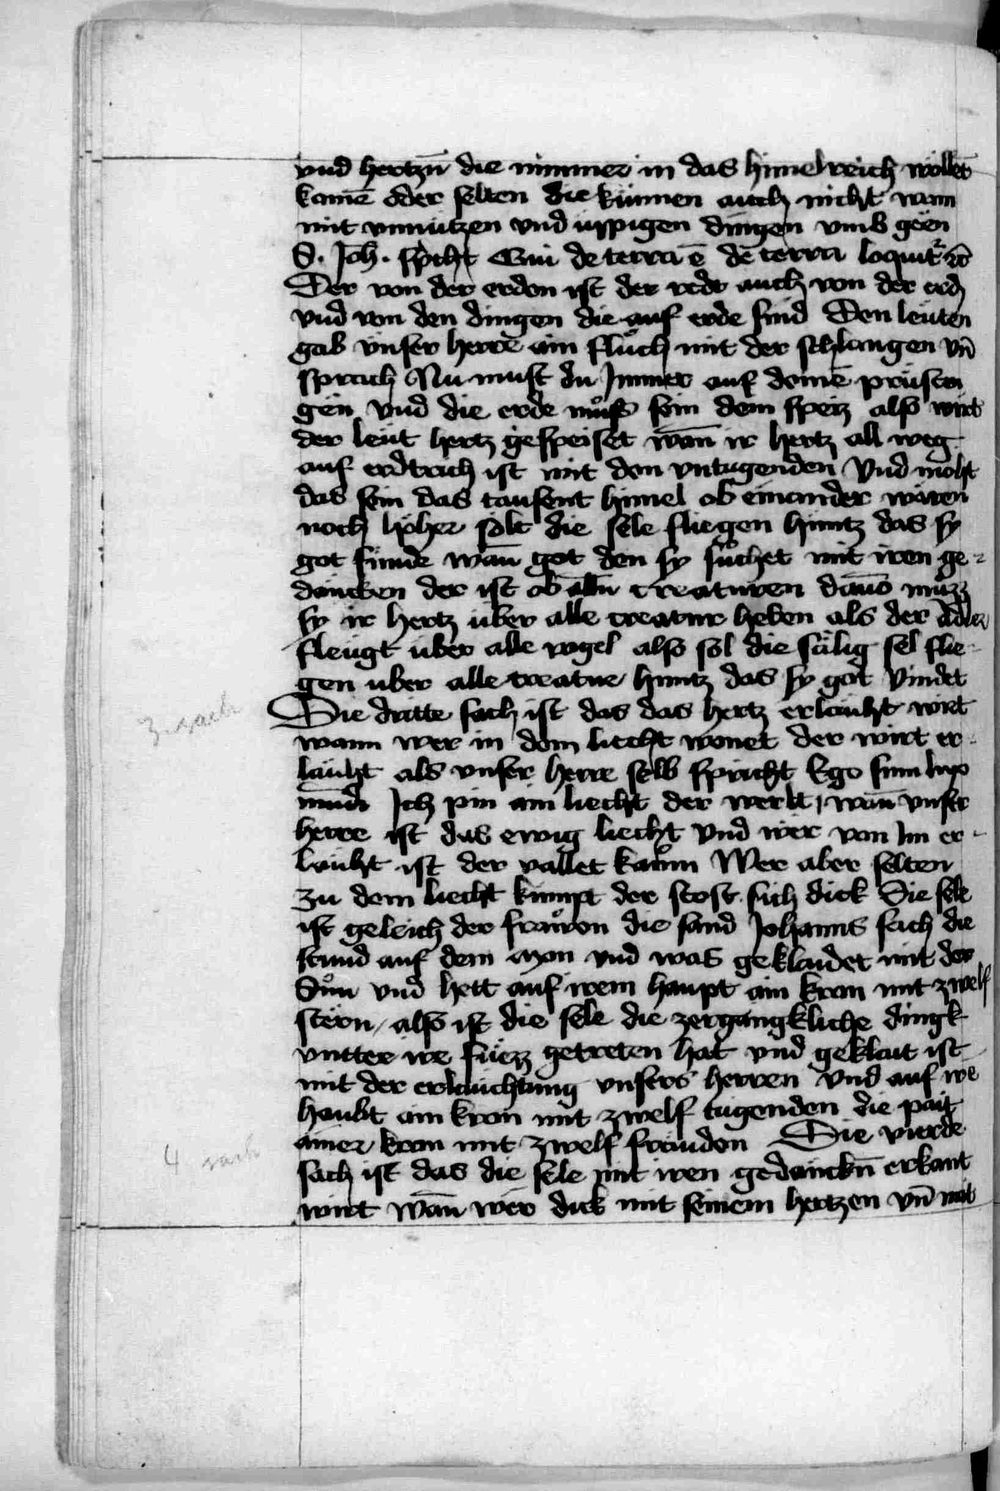 vnd hertzn̄ die nimmer in das himelreich wöllēt
komē oder selten die künnen auch nicht wann
mit vnnützen vnd üppigen dingen vmb geen
S. Joh. spricht Qui de terra ē de terra loquitʳ ꝛc̄
Der von der erden ist der redt auch von der erd
vnd von den dingen die auf erde sind Den leuten
gab vnser herre ain fluͦch mit der schlangen vn̄
sprach Nu must du Immer auf deinē prüsten
gen vnd die erde muͦss sein dein speiz also wirt
der leut hertz gespeiset wān ir hertz all weg
auf erdtrich ist mit den vntugenden Vnd möcht
das sein das tausent himel ob einander wären
noch höher solt die sele fliegen huntz das sy
got funde wan got den sy suchet mit iren ge-
dancken der ist ob alln̄ creaturen dauō muͤzz
sy ir hertz über alle creatur heben als der adler
fleugt über alle vogel also sol die sälig sel flie-
gen uber alle creatur huntz das sy got vindet
3. sach
Die dritte sach ist das das hertz erlaucht wirt
wann wer in dem liecht wonet der wirt er-
laucht als vnser herre selb spricht Ego sum lux
mūdi Ich pin ain liecht der werlt, wān vnser
herre ist das ewig liecht vnd wer von Im er-
laucht ist der vallet kaum Wer aber selten
zu dem liecht kumpt der stost sich dick Die sele
ist geleich der frawen die sand Johanns sach die
stund auf dem mon vnd was geklaidet mit der
Suͦn vnd hett auf irem haupt ain kron mit zwelf
stern, also ist die sele die zergangkliche dingk
vntter ire fuͤzz getreten hat vnd geklait ist
mit der erlauchtung vnsers herren vnd auf ire
haubt ain kron mit zwelf tugenden die pait
ainer kron mit zwelf frauden Die vierde
4 sach
sach ist das die sele mit iren gedanckn̄ erkant
wirt wān wer dick mit seinem hertzen vn̄ mit